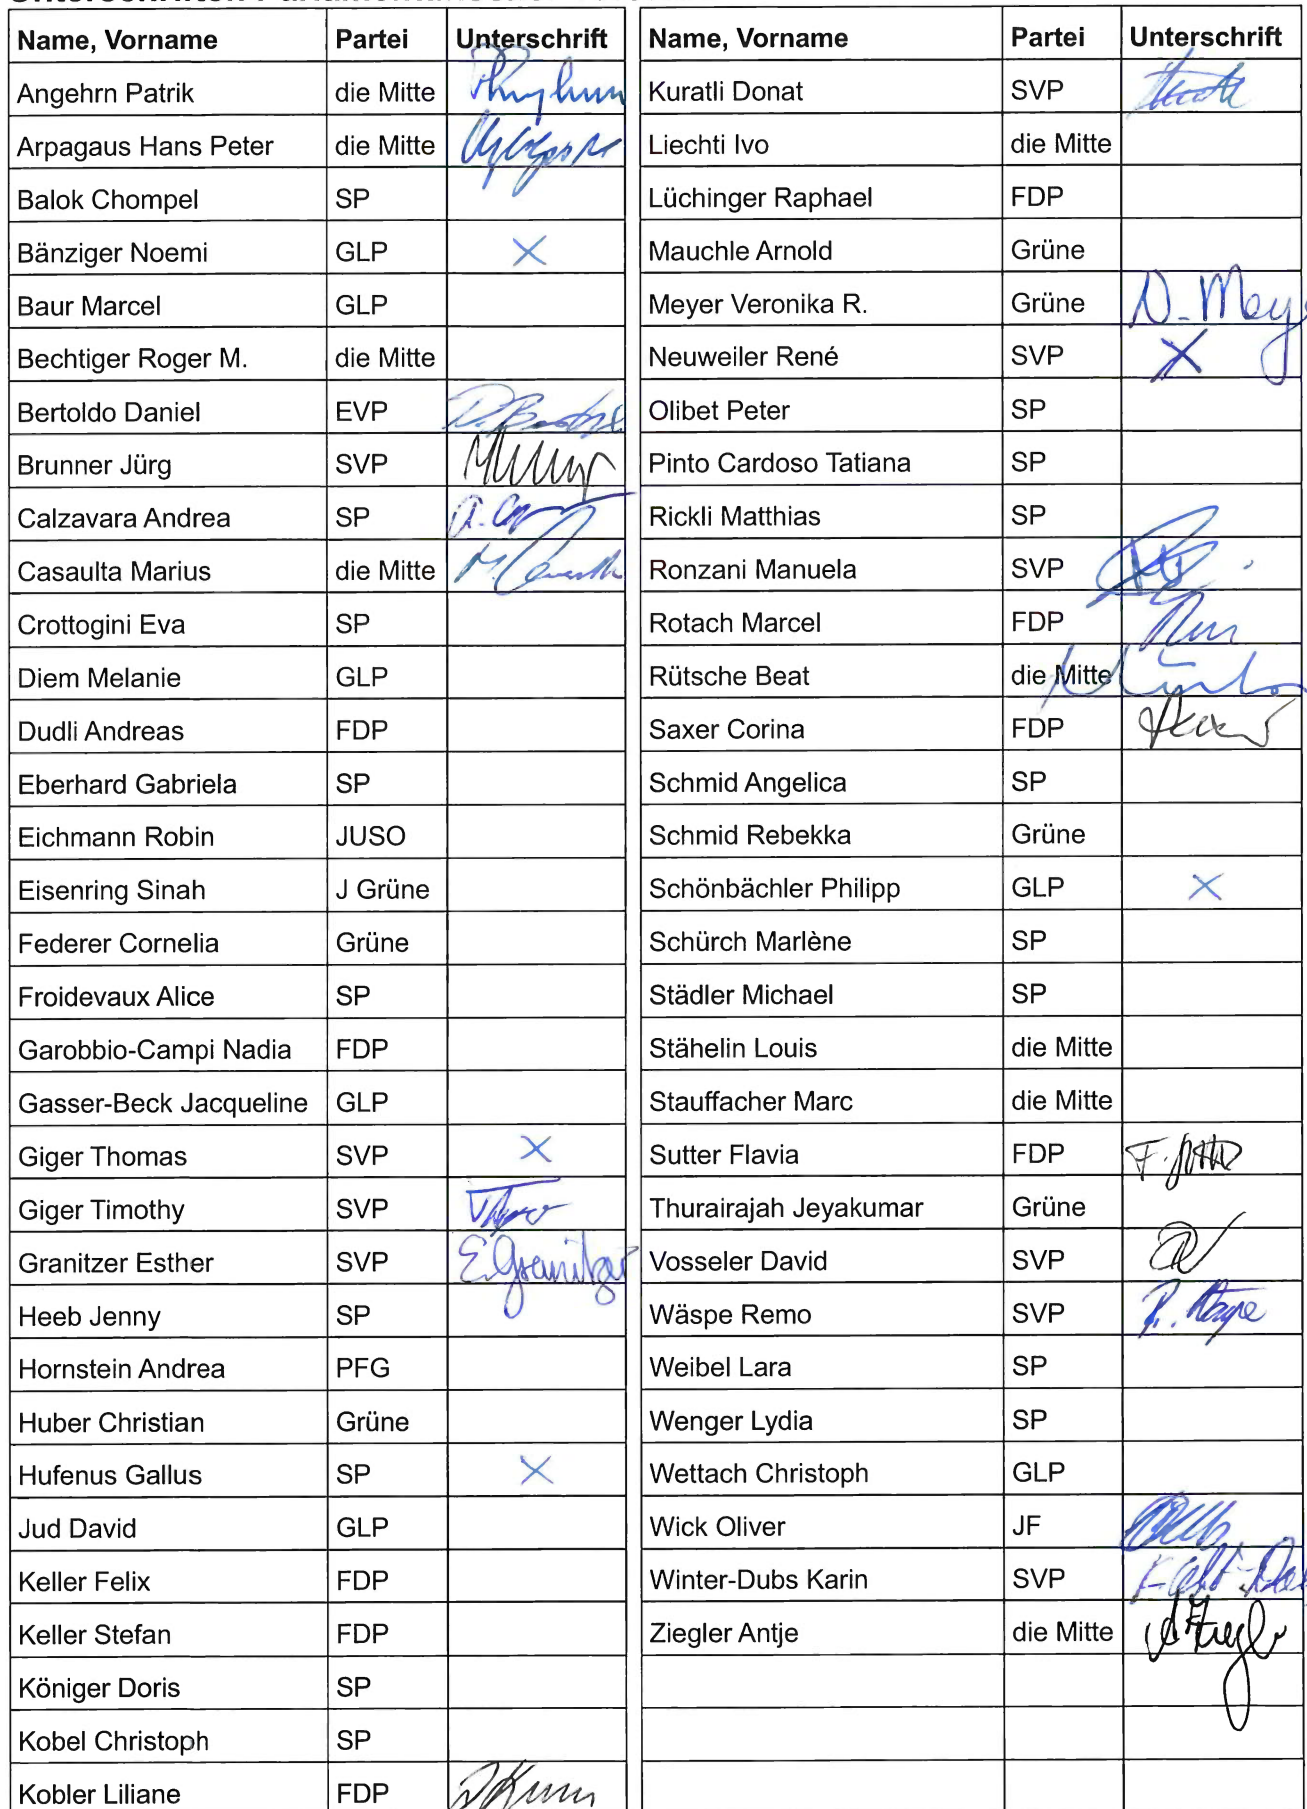 Name, Vorname Partei Unterschrift
Angehrn Patrik die Mitte
Arpagaus Hans Peter die Mitte
Balok Chompel SP
Bänziger Noemi GLP X
Baur Marcel GLP
Bechtiger Roger M. die Mitte
Bertoldo Daniel EVP
Brunner Jürg SVP
Calzavara Andrea SP
Casaulta Marius die Mitte
Crottogini Eva SP
Diem Melanie GLP
Dudli Andreas FDP
Eberhard Gabriela SP
Eichmann Robin JUSO
Eisenring Sinah J Grüne
Federer Cornelia Grüne
Froidevaux Alice SP
Garobbio-Campi Nadia FDP
Gasser-Beck Jacqueline GLP
Giger Thomas SVP X
Giger Timothy SVP
Granitzer Esther SVP E. Granitzer
Heeb Jenny SP
Hornstein Andrea PFG
Huber Christian Grüne
Hufenus Gallus SP X
Jud David GLP
Keller Felix FDP
Keller Stefan FDP
Königer Doris SP
Kobel Christoph SP
Kobler Liliane FDP
Name, Vorname Partei Unterschrift
Kuratli Donat SVP
Liechti Ivo die Mitte
Lüchinger Raphael FDP
Mauchle Arnold Grüne
Meyer Veronika R. Grüne
Neuweiler René SVP X
Olibet Peter SP
Pinto Cardoso Tatiana SP
Rickli Matthias SP
Ronzani Manuela SVP
Rotach Marcel FDP
Rütsche Beat die Mitte
Saxer Corina FDP
Schmid Angelica SP
Schmid Rebekka Grüne
Schönbächler Philipp GLP X
Schürch Marlène SP
Städler Michael SP
Stähelin Louis die Mitte
Stauffacher Marc die Mitte
Sutter Flavia FDP
Thurairajah Jeyakumar Grüne
Vosseler David SVP
Wäspe Remo SVP
Weibel Lara SP
Wenger Lydia SP
Wettach Christoph GLP
Wick Oliver JF
Winter-Dubs Karin SVP
Ziegler Antje die Mitte